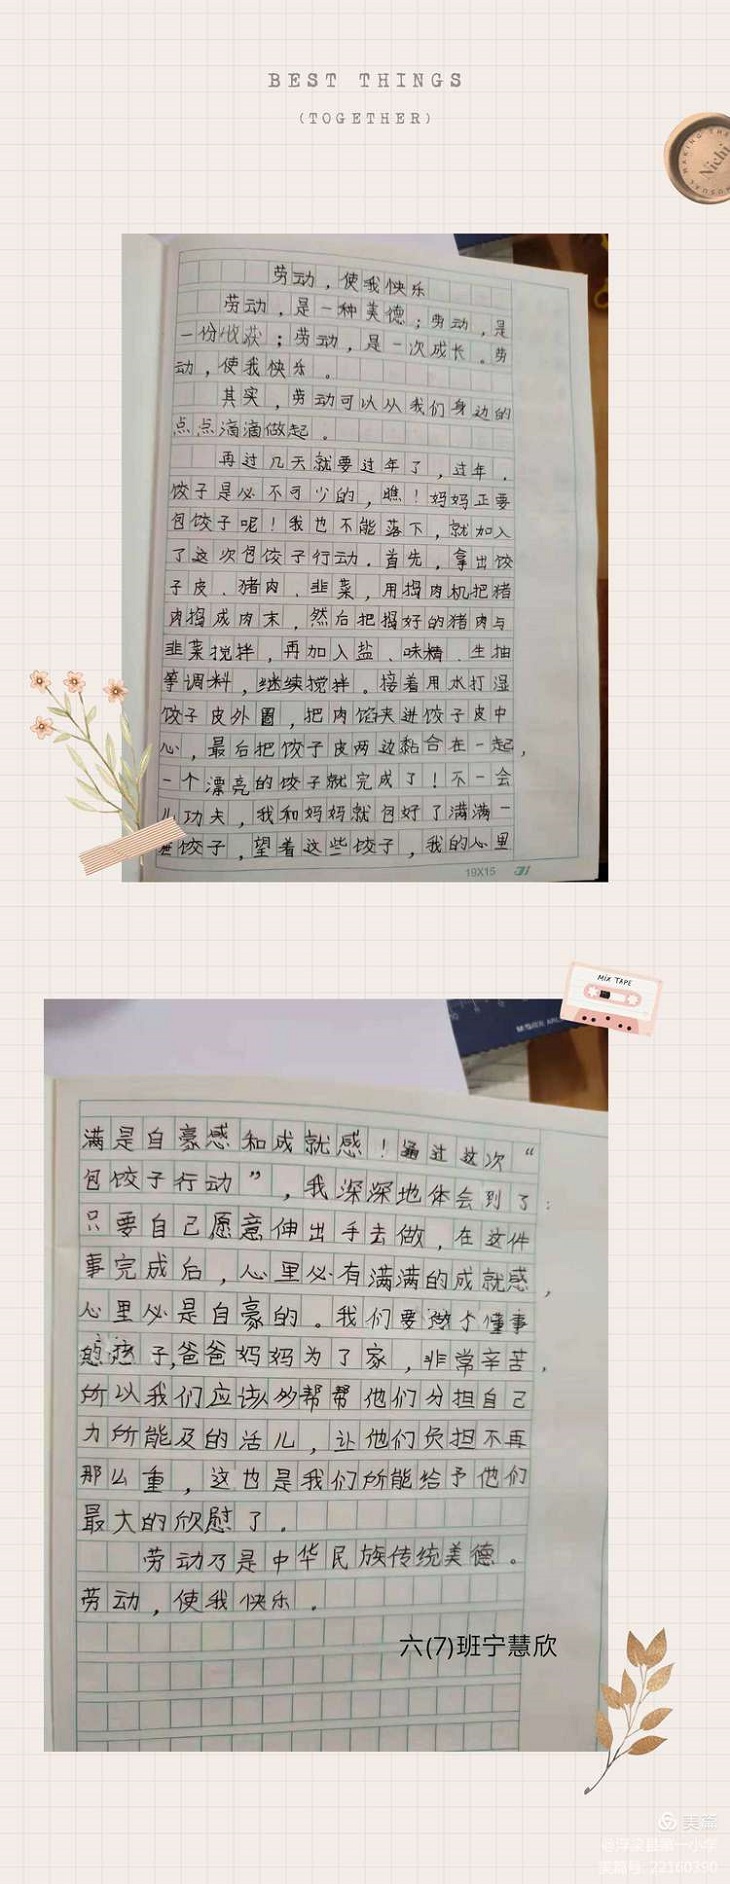 BEST THINGS
(TOGETHER)
MAKING THE
Nichi
UNUSUAL
劳动，使我快乐
劳动，是一种美德；劳动，是
一份收获；劳动，是一次成长。劳
动，使我快乐。
其实，劳动可以从我们身边的
点点滴滴做起。
再过几天就要过年了，过年，
饺子是必不可少的，瞧！妈妈正要
包饺子呢！我也不能落下，就加入
了这次包饺子行动。首先，拿出饺
子皮、猪肉、韭菜，用捣肉机把猪
肉捣成肉末，然后把捣好的猪肉与
韭菜搅拌，再加入盐、味精、生抽
等调料，继续搅拌。接着用水打湿
饺子皮外圈，把肉馅夹进饺子皮中
心，最后把饺子皮两边黏合在一起，
一个漂亮的饺子就完成了！不一会
儿功夫，我和妈妈就包好了满满一
饺子，望着这些饺子，我的心里
19X15
MIX TAPE
满是自豪感和成就感！通过这次“
包饺子行动”，我深深地体会到了：
只要自己愿意伸出手去做，在这件
事完成后，心里必有满满的成就感，
心里必是自豪的。我们要做个懂事
的孩子，爸爸妈妈为了家，非常辛苦，
所以我们应该多帮帮他们分担自己
力所能及的活儿，让他们负担不再
那么重，这也是我们所能给予他们
最大的欣慰了。
劳动乃是中华民族传统美德。
劳动，使我快乐。
六(7)班宁慧欣
美篇
@浮梁县第一小学
美篇号: 22160390